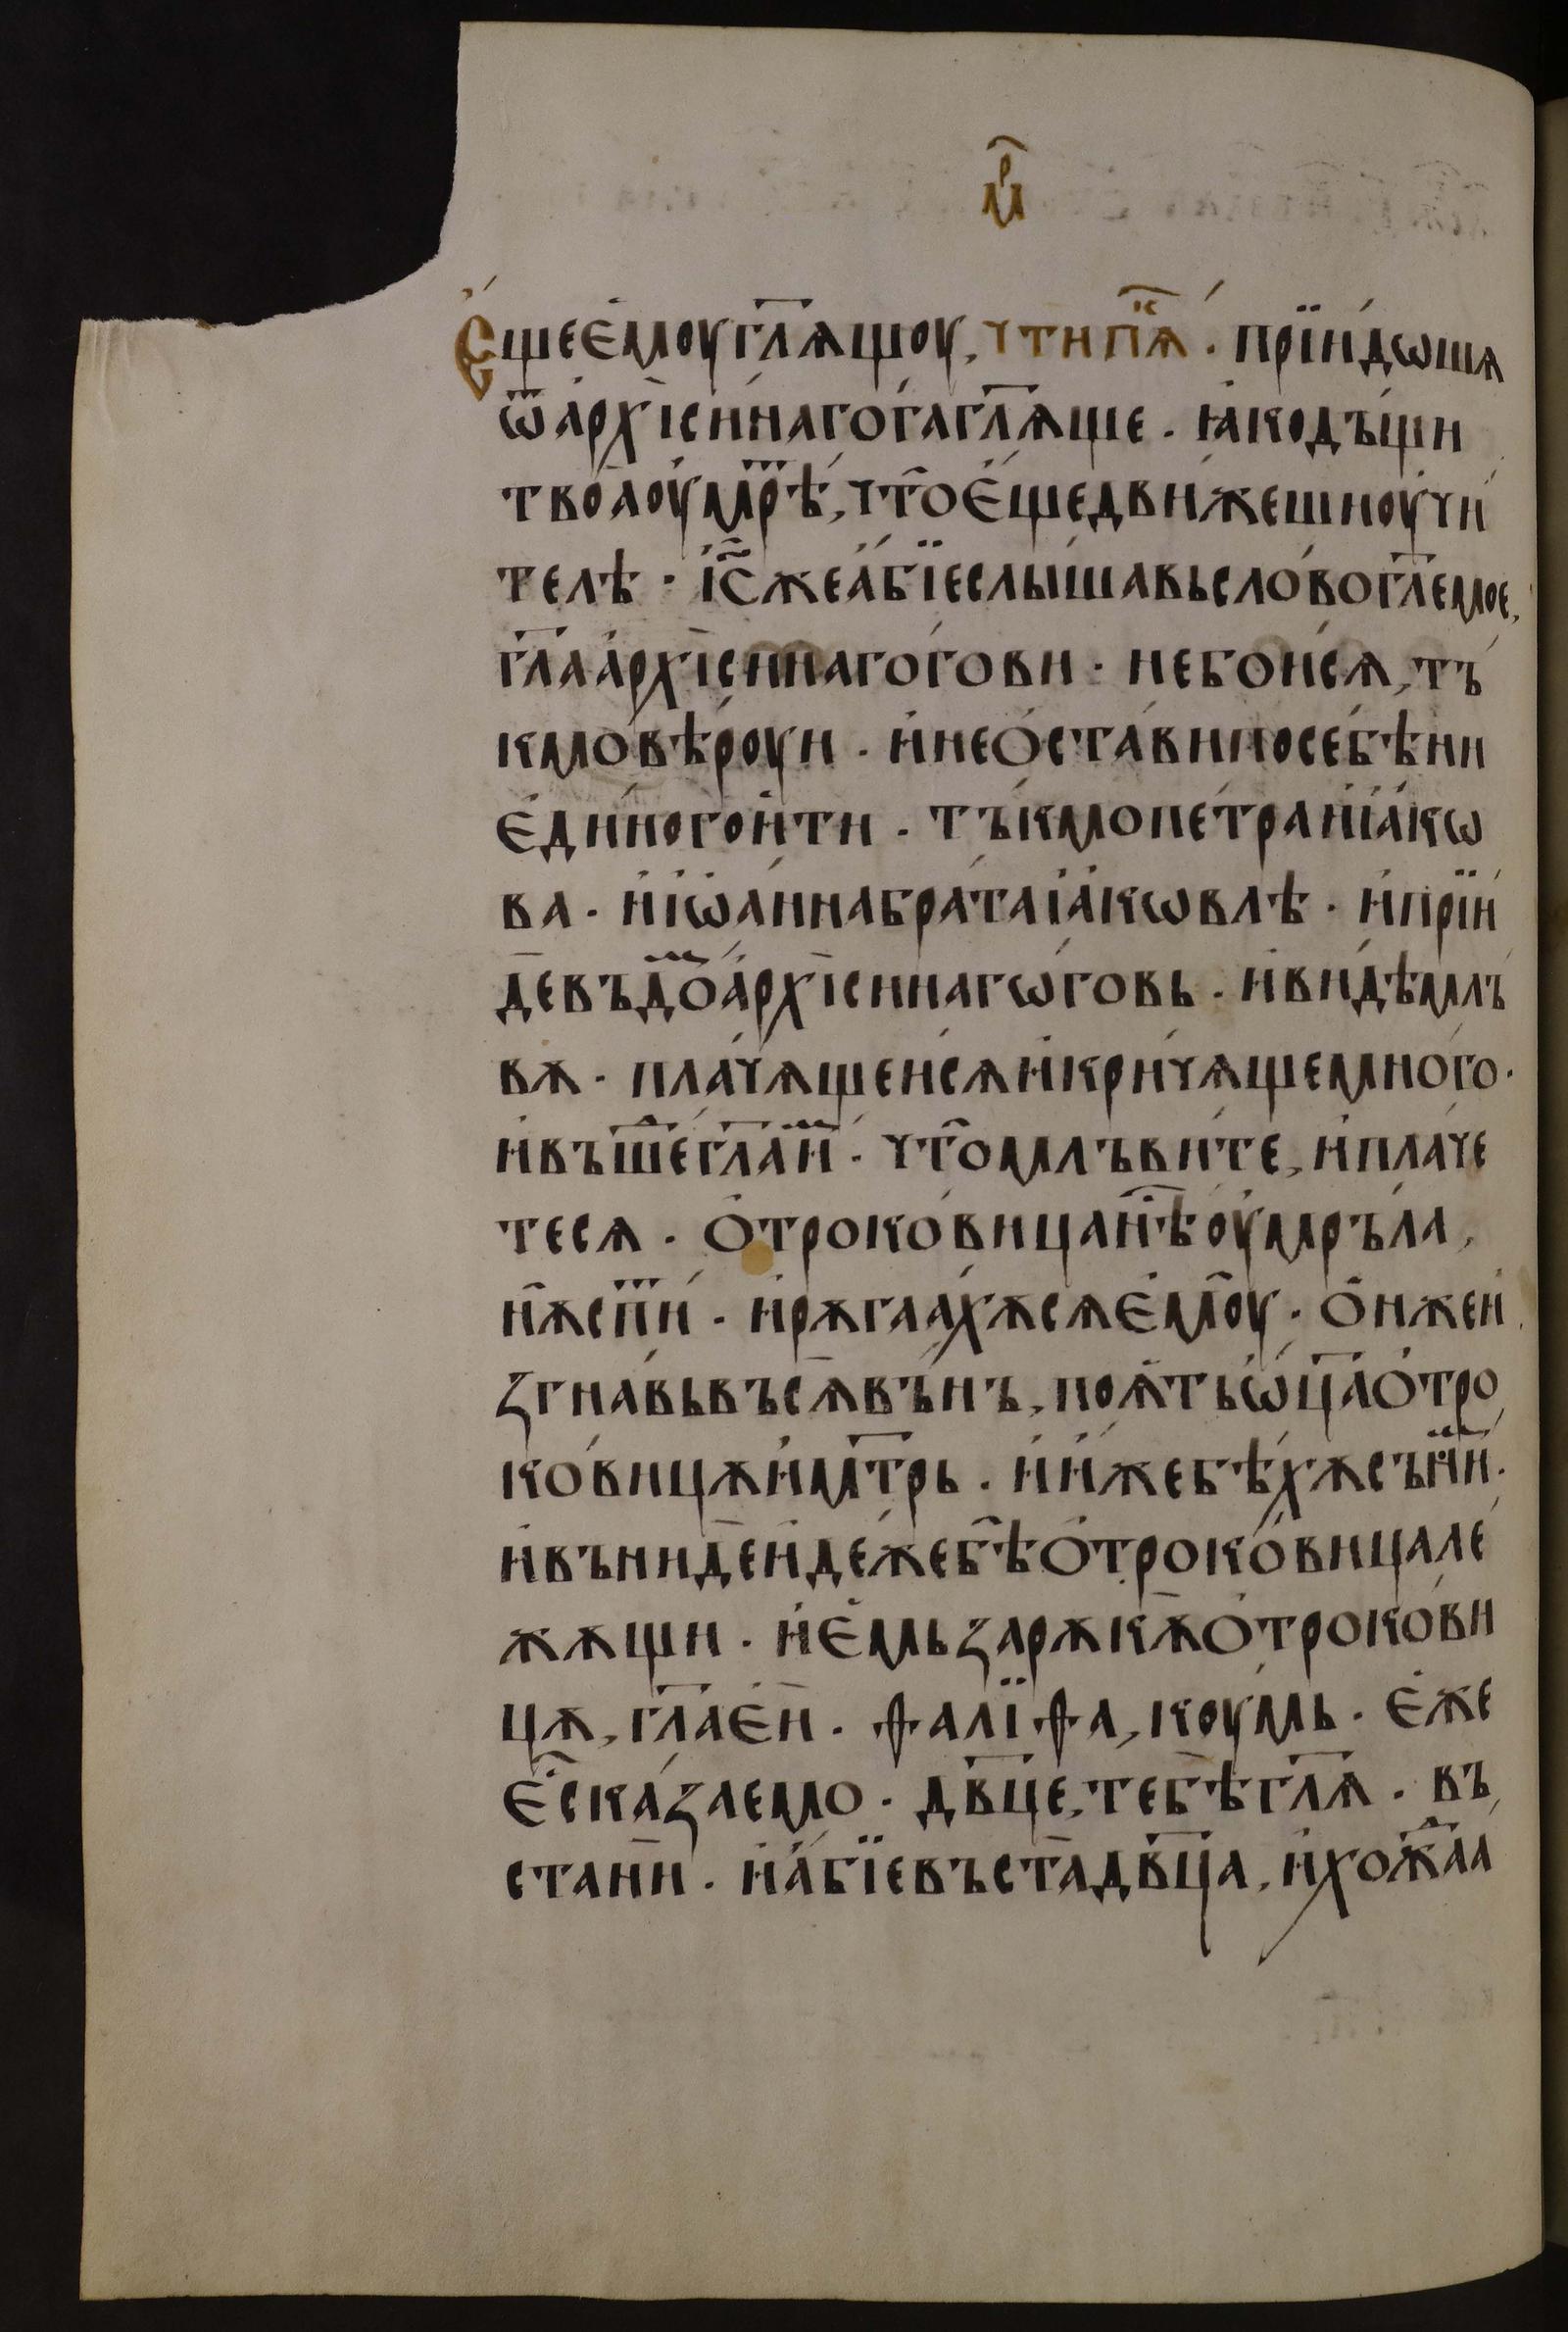 мр҃
Е҆́щее҆моугл҃ѧщоу, чтипⷭ҇ѧ҃. прїи́дошѧ
ѿа҆рхїсѵ́нагѡ́гагл҃ѧще. ꙗ҆кодъ́щи
твоа҆оу҆мрѣ̀, что҆е҆́щедви́жешиоу҆чи́
телѣ. і҆с҃жеа҆́бїеслы́шавьсло́вогл҃емое,
гл҃аа҆рхїсѵнаго́гови. небои́сѧ, тъ́
кмовѣ́роуи. и҆нео҆ста́виипосебѣ́ни
е҆ди́ногои҆ти. тъ́кмопе́траи҆і҆а́кѡ
ва. и҆і҆ѡа́ннабра́таі҆а́кѡвлѣ. и҆прїи́
девъдо́а҆рхїсѵнагѡ́говь. и҆ви́дѣмлъ
вѫ. пла́чѧщеи́сѧи҆крича́щемно́го.
и҆въше́гл҃аи҆́. чтомлъви́те, и҆пла́че
тесѧ. о҆троко́вицанѣ́оу҆мръла,
нѫспи́. и҆рѫгаа́хѫсѧе҆моу. ѻ҆́нжеи҆
ꙁгна́вьвъсѧвъ́нъ, поѧ́тьѡ҆ц҃ао҆тро
ко́вицѫи҆мт҃рь. и҆и҆́жебѣ́хѫсъни́.
и҆въниде́и҆де́жебѣо҆троко́вицале
жѧщи. и҆е҆́мьꙁарѫкѫо҆троко́ви
цѫ, гл҃ае҆́и. ѳалїѳа, коу́мь. е҆́же
е҆́сⷭка́ꙁаемо. дв҃це, тебѣгл҃ѧ. въ
стани. и҆а҆́бїевъстадв҃ца, и҆хождаа